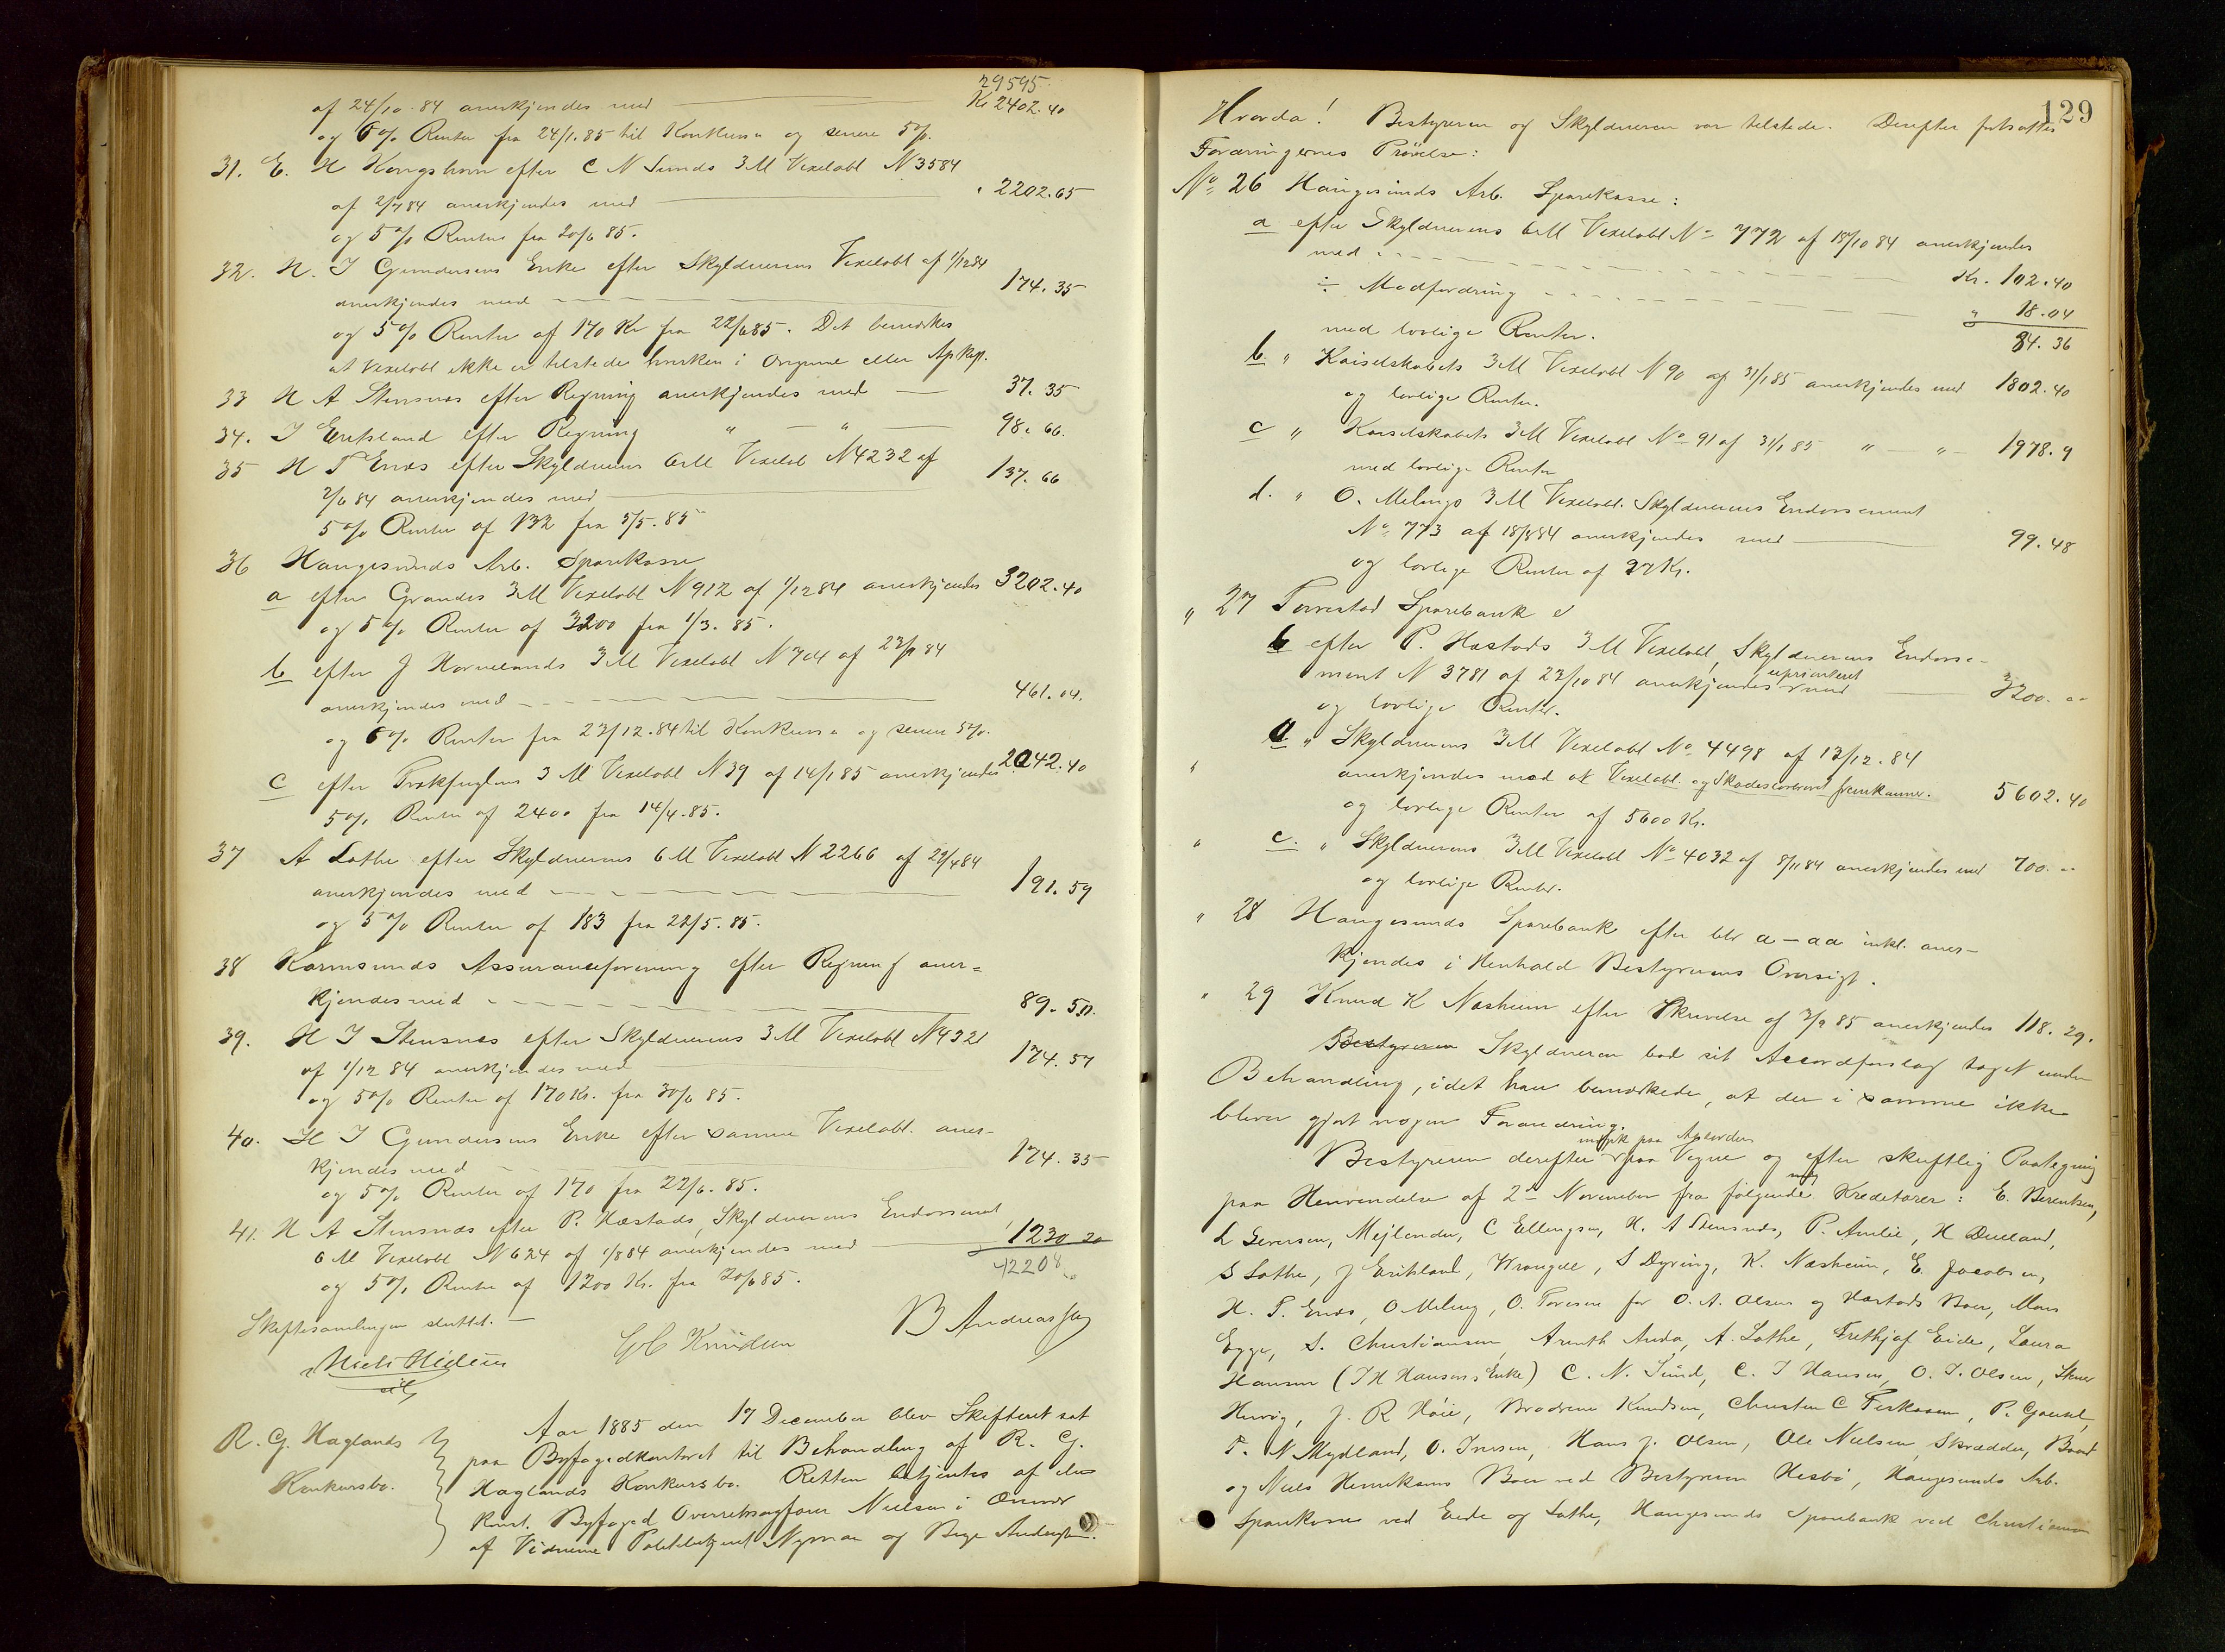 29595
af 24/10-84 anerkjendes med — Kr 2402.40
og 6% Renter fra 24/1.85 til Konkursen og senere 5%.
31. E. H Kongshavn efter C N Sunds 3M Vexelobl N 3584
af 2/7 84 anerkjendes med — " 2202.65
og 5% Renter fra 20/6 85.
32. N. J Gundersens Enke efter Skyldnerens Vexelobl af 1/12 84
anerkjendes med — 174.35
og 5% Renter af 170 Kr fra 22/6 85. Det bemærkes
at Vexelobl ikke er tilstede hverken i Original eller Afskr.
33 H A Stensnæs efter Regning anerkjendes med — 37.35
34. J Eriksland efter Regning " — " — 98.66.
35 H T Enæs efter Skyldnerens 6M Vexelob N 4232 af
2/6 84 anerkjendes med — 137.66
5% Renter af 132 fra 5/5.85
36 Haugesunds Arb. Sparekasse
a efter Grandes 3M Vexelobl N 912 af 1/12 84 anerkjendes 3202.40
og 5% Renter af 3200 fra 1/3.85.
b efter J Hornelands 3M Vexelobl N 704 af 23/9 84
anerkjendes med — 461.04.
og 6% Renter fra 23/12.84 til Konkursen og senere 5%.
c efter Trækfuglens 3 M Vexelobl N 39 af 14/1 85 anerkjendes 2042.40
5% Renter af 2400 fra 14/4.85.
37 A Lothe efter Skyldnerens 6M Vexelobl N 2266 af 22/4 84
anerkjendes med — 191.59
og 5% Renter af 183 fra 22/5.85.
38 Karmsunds Assuranceforening efter Regning aner-
kjendes med — 89.50.
39. H J Stensnæs efter Skyldnerens 3M Vexelobl N 4321
af 1/12 84 anerkjendes med — 174.57
og 5% Renter af 170 Kr. fra 30/6 85.
40. H J Gundersens Enke efter samme Vexelobl. aner-
kjendes med — 174.35
og 5% Renter af 170 fra 22/6.85.
41. H A Stensnæs efter P. Hæstads, Skyldnerens Endossement
6 M Vexelobl N 624 af 1/8 84 anerkjendes med — 1230 20
og 5% Renter af 1200 Kr. fra 20/6 85. 42208
Skiftesamlingen sluttet. —
Niels Nielsen
G C Knudsen
B Andreassen
R. G. Haglands
Konkursbo.
Aar 1885 den 17 December blev Skifteret sat
paa Byfogedkontoret til Behandling af R. G.
Haglands Konkursbo. Retten betjentes af den
konst. Byfoged Overretssagfører Nielsen i Overvær
af Vidnerne Politibetjent Nyman og Birger Andersen.
129
Hvorda! Bestyreren og Skyldneren var tilstede. Derefter fortsattes
Fordringernes Prøvelse:
No 26 Haugesunds Arb. Sparekasse:
a efter Skyldnerens 6M Vexelobl No 772 af 18/10 84 anerkjendes
med — Kr. 102.40
÷ Modfordring — " 18.04
med lovlige Renter. 84.36
b. " Kaiselskabets 3M Vexelobl N 90 af 31/1 85 anerkjendes med 1802.40
og lovlige Renter.
c " Kaiselskabets 3M Vexelobl No 91 af 31/1 85 " — " — 1978.9
med lovlige Renter
d. " O. Melings 3M Vexelobl. Skyldnerens Endossement
No 773 af 18/8 84 anerkjendes med — 99.48
og lovlige Renter af 97 Kr.
" 27 Torvestad Sparebank
b efter P. Hæstads 3 M Vexelobl, Skyldnerens Endosse-
ment N 3781 af 22/10 84 anerkjendes uprioriteret med — 3200. "
og lovlige Renter.
" a " Skyldnerens 3M Vexelobl No 4498 af 13/12.84
anerkjendes med at Vexelobl. og Skadesløsbrevet fremkommer. 5602.40
og lovlige Renter af 5600 Kr.
" c. " Skyldnerens 3M Vexelobl No 4032 af 8/11 84 anerkjendes med 700. "
og lovlige Renter.
" 28 Haugesunds Sparebank efter litr a – aa inkl. aner-
kjendes i Henhold Bestyrerens Oversigt.
" 29 Knud K Næsheim efter Skrivelse af 3/9 85 anerkjendes 118.29.
Bestyreren Skyldneren bad sit Accordforslag taget under
Behandling, idet han bemærkede, at der i samme ikke
bliver gjort nogen Forandring.
Bestyreren derefter indgik paa Akkorden paa Vegne og efter skriftlig Paategning
paa Henvendelse af 2den November fra følgende Kreditorer: E. Berentsen,
L Seversen, Mejlender, C Ellingsen, H. A Stensnæs, P. Amlie, H Dueland,
S Lothe, J Eriksland, Wrangell, S Dyring, K. Næsheim, E. Jacobsen,
H. T. Enæs, O. Meling, O. Toresen for O. A. Olsen og Hæstads Boer, Mons
Egge, S. Christiansen, Arenth Anda, A. Lothe, Frethjof Eide, Laura
Hansen (J H Hansens Enke) C. N. Sund, C. J Hansen, O. J. Olsen,
J. R Høie, Brødrene Knudsen, Christen C
T. N Mydland, O. Iversen, Hans J. Olsen, Ole Nielsen, Skrædder,
og Niels Henriksens Boer ved Bestyreren Hesbø, Haugesunds Arb.
Sparekasse ved Eide og Lothe, Haugesunds Sparebank ved Christiansen